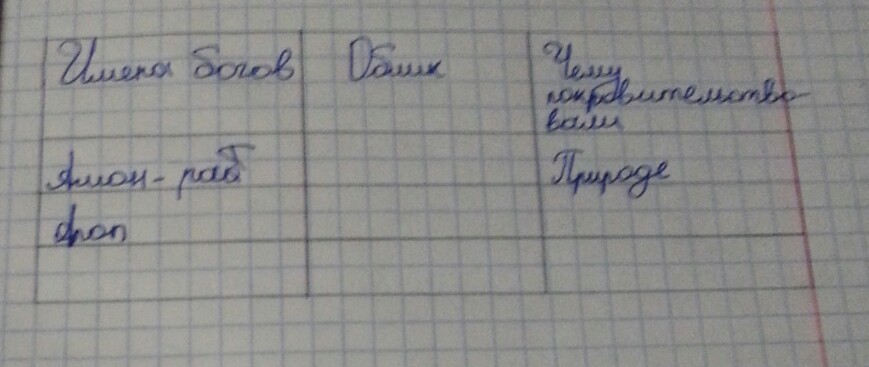 Имена богов
Облик
Чему
покровительство-
вали
Амон-раб
Природе
Апоп